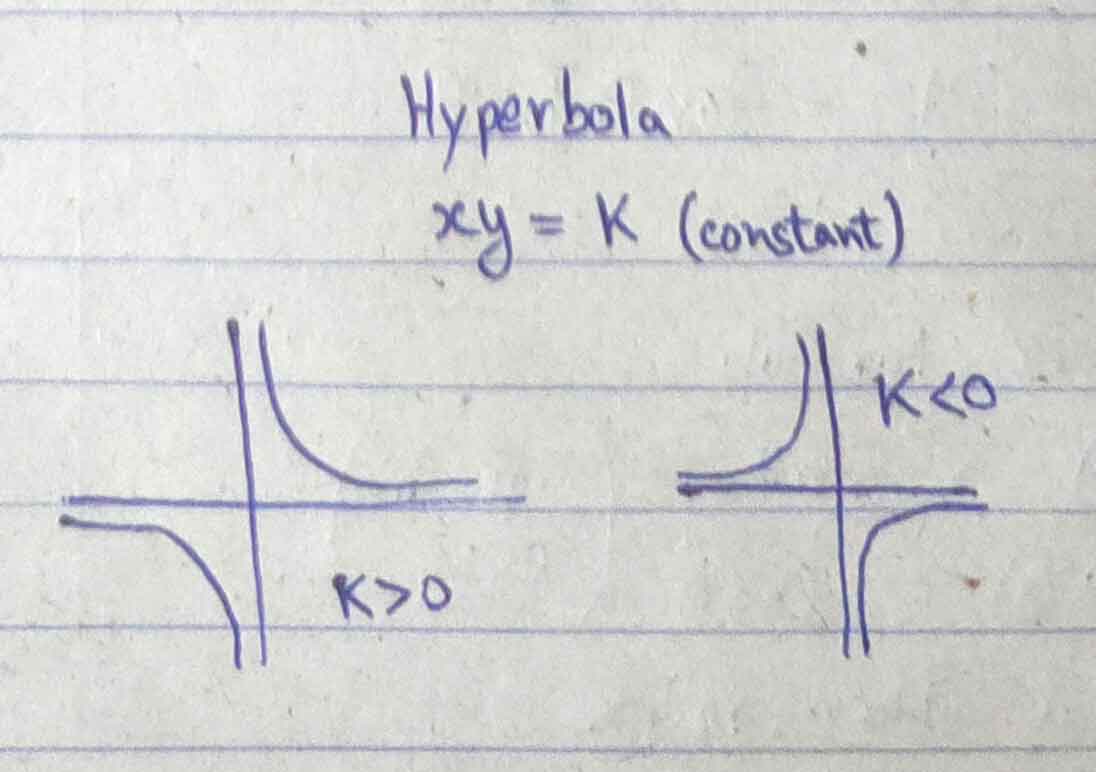 Hyperbola
xy = K (constant)
K<0
K>0